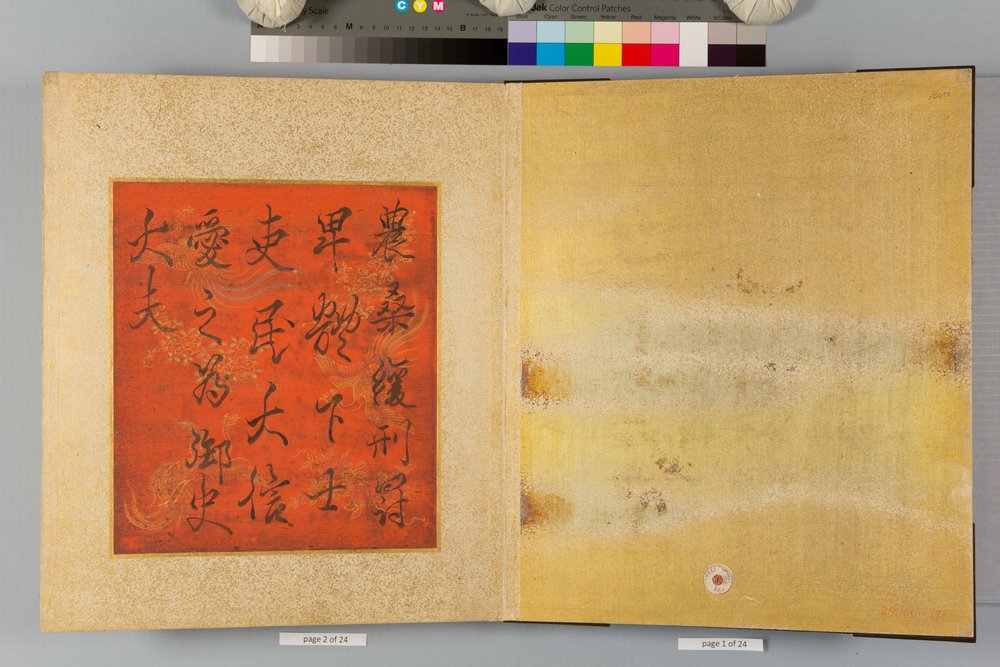 Scale
C Y M
Kodak Color Control Patches
Blue Cyan Green Yellow Red Magenta White 3/Color
M 8 9 10 11 12 13 14 15 B 17 18 19
農桑緩刑罰
卑體下士
吏民大信
愛之為御史
大夫
page 2 of 24
page 1 of 24